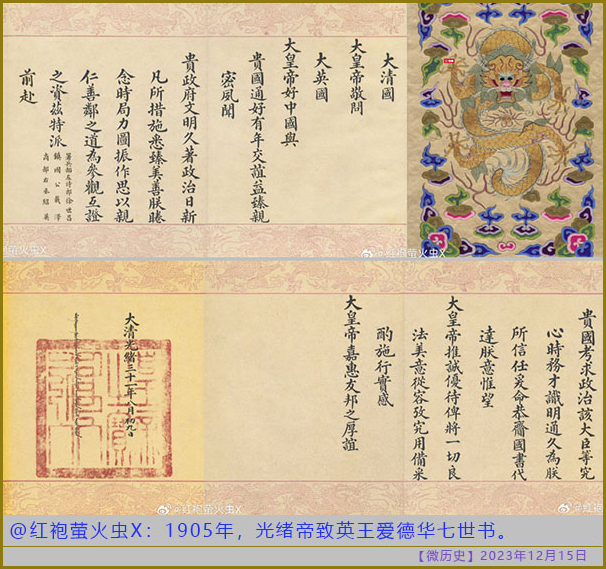 大清國
大皇帝敬問
大英國
大皇帝好中國與
貴國通好有年交誼益臻親
密夙聞
貴政府文明久著政治日新
凡所措施悉臻美善朕睠
念時局力圖振作思以親
仁善鄰之道為參觀互證
之資茲特派
署兵部左侍郎徐世昌
鎮國公載澤
商部右丞紹英
前赴
红袍萤火虫X
@红袍萤火虫X
貴國考求政治該大臣等究
心時務才識明通久為朕
所信任爰命恭齎國書代
達朕意惟望
大皇帝推誠優待俾將一切良
法美意從容攷究用備采
酌施行實感
大皇帝嘉惠友邦之厚誼
大清光緒三十一年八月初九日
@红袍萤火虫X
@红袍
@红袍萤火虫X：1905年，光绪帝致英王爱德华七世书。
【微历史】2023年12月15日